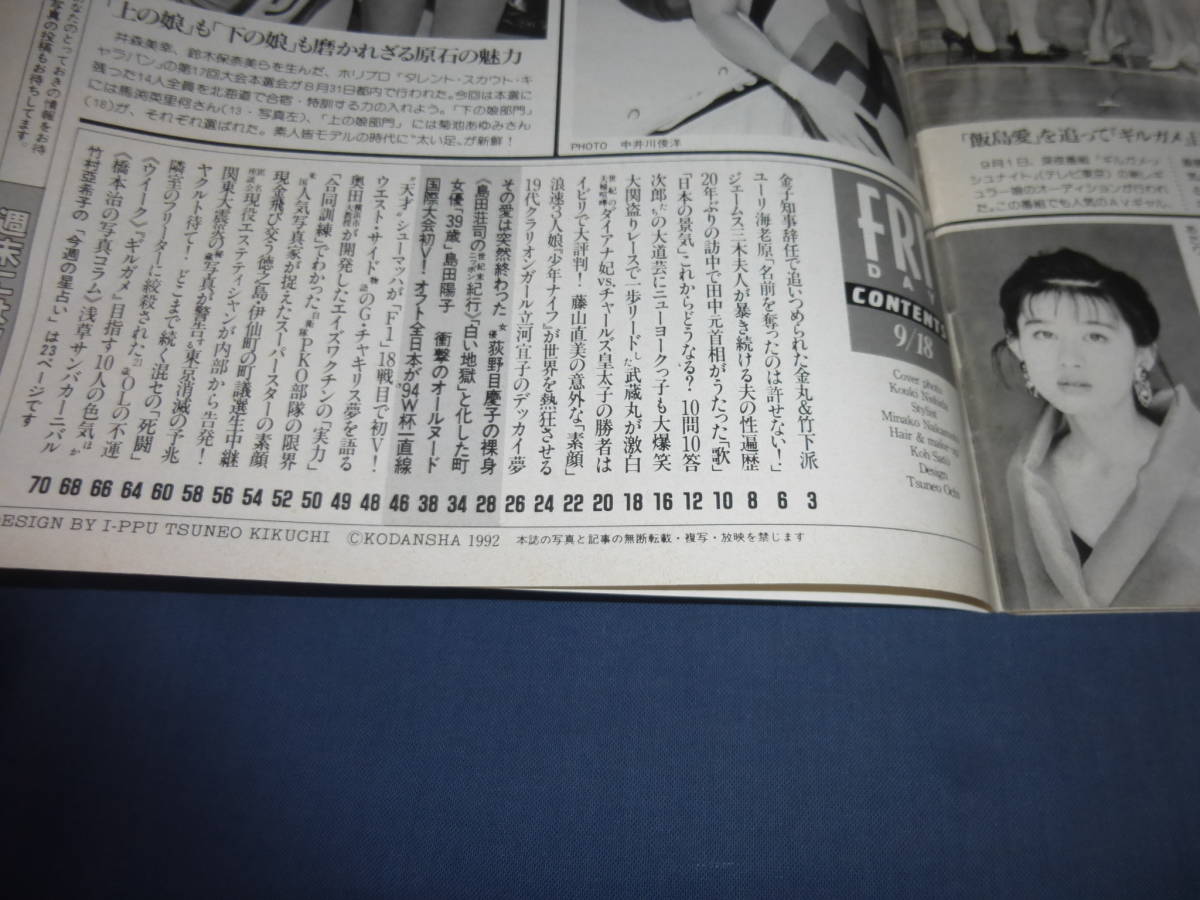 「上の娘」も「下の娘」も磨かれざる原石の魅力
井森美幸、鈴木保奈美らを生んだ、ホリプロ「タレント・スカウト・キ
ャラバン」の第17回大会本選会が8月31日都内で行われた。今回は本選に
残った14人全員を北海道で合宿・特訓する力の入れよう。「下の娘部門」
には馬渕英里何さん(13・写真左)、「上の娘部門」には菊池あゆみさん
(18)が、それぞれ選ばれた。素人皆モデルの時代に“太い足”が新鮮!
なたのとっておきの情報をお待
写真の投稿もお待ちしてます。
PHOTO 中井川俊洋
「飯島愛」を追って「ギルガメ
9月1日、深夜番組「ギルガメッ
シュナイト」(テレビ東京)の新レギ
ュラー娘のオーディションが行われ
た。この番組でも人気のAVギャル、
FRI
DAY
CONTENTS
9/18
Cover photo
Stylist
Minako Nakamura
Hair & make-up
Koh Saito
Design
Tsuneo Ochi
金子知事辞任で追いつめられた金丸&竹下派 3
ユーリ海老原「名前を奪ったのは許せない!」 6
ジェームス三木夫人が暴き続ける夫の性遍歴 8
20年ぶりの訪中で田中元首相がうたった「歌」 10
「日本の景気」これからどうなる? 10問10答 12
次郎たちの大道芸にニューヨークっ子も大爆笑 16
大関盗りレースで一歩リードした武蔵丸が激白 18
世紀の夫婦喧嘩 ダイアナ妃vs.チャールズ皇太子の勝者は 20
イビリで大評判! 藤山直美の意外な「素顔」 22
浪速3人娘「少年ナイフ」が世界を熱狂させる 24
19代クラリオンガール立河宜子のデッカイ夢 26
その愛は突然終わった 女優荻野目慶子の裸身 28
〈島田荘司の世紀末ニッポン紀行〉「白い地獄」と化した町 34
女優「39歳」島田陽子 衝撃のオールヌード 38
国際大会初V! オフト全日本が'94W杯一直線 46
“天才”シューマッハが「F1」18戦目で初V! 48
ウエスト・サイド物語のG・チャキリス夢を語る 49
奥田横浜市大教授が開発したエイズワクチンの「実力」 50
「合同訓練」でわかった自衛隊PKO部隊の限界 52
米国人気写真家が捉えたスーパースターの素顔 54
現金飛び交う徳之島・伊仙町の町議選生中継 56
現役エステティシャンが内部から告発! 58
関東大震災の秘蔵写真が警告する東京消滅の予兆 60
ヤクルト待て! どこまで続く混セの「死闘」 62
隣室のフリーターに絞殺された21歳OLの不運 64
〈ウイーク〉「ギルガメ」目指す10人の色気ほか 66
〈橋本治の写真コラム〉浅草サンバカーニバル 68
竹村亜希子の「今週の星占い」は23ページです 70
DESIGN BY I-PPU TSUNEO KIKUCHI ©KODANSHA 1992 本誌の写真と記事の無断転載・複写・放映を禁じます